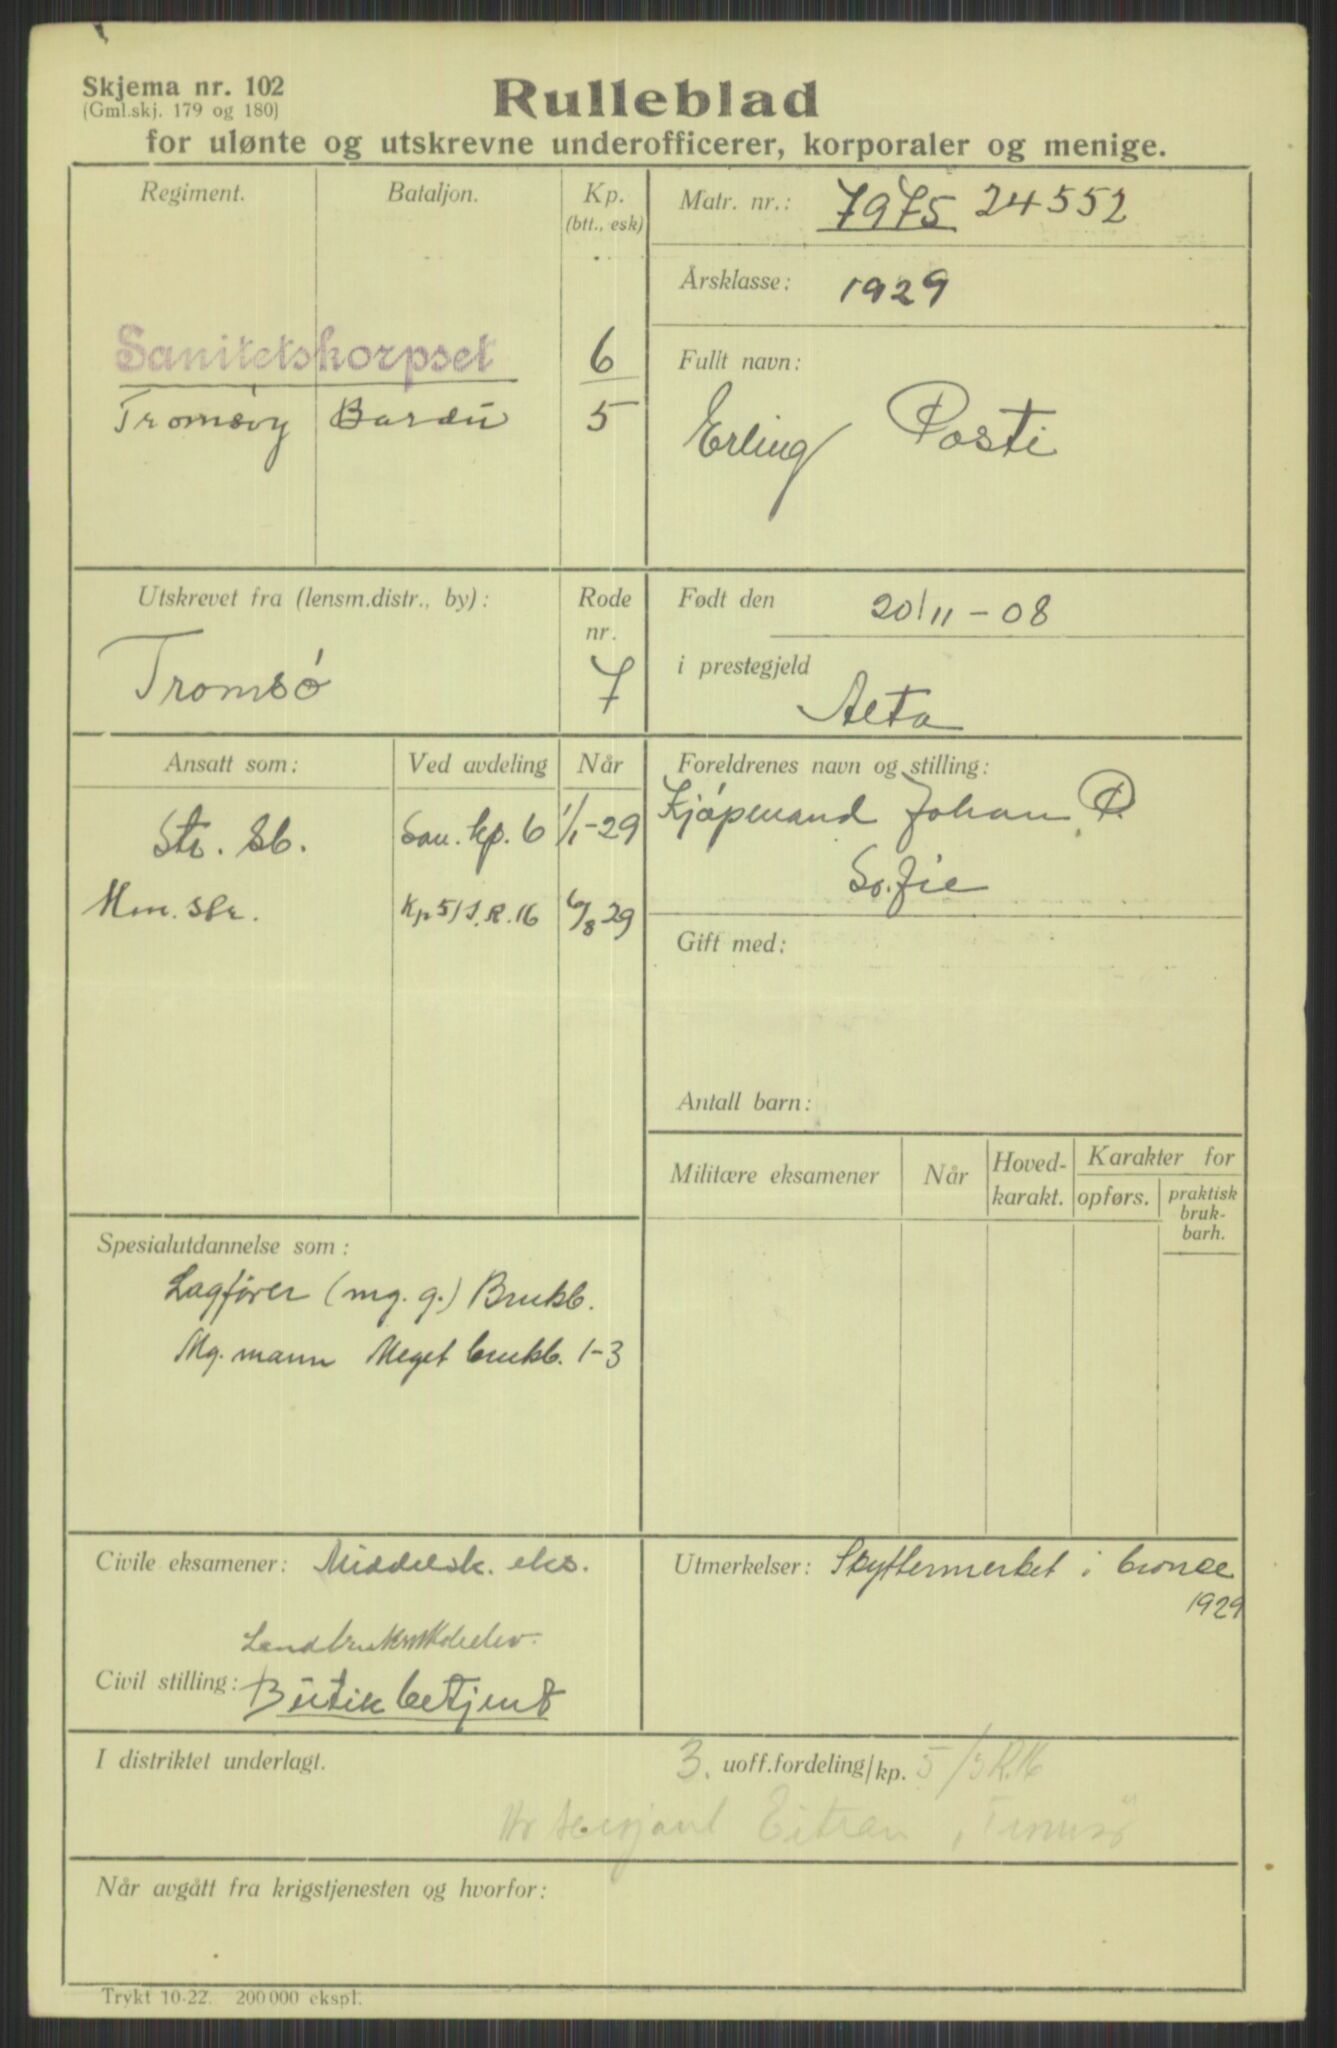 Skjema nr. 102
(Gml.skj. 179 og 180)
Rulleblad
for ulønte og utskrevne underofficerer, korporaler og menige.
Regiment. Bataljon. Kp. (btt., esk)
Matr. nr.: 7975 24552
Årsklasse: 1929
Sanitetskorpset 6
Tromsøy Bardu 5
Fullt navn:
Erling Posti
Utskrevet fra (lensm.distr., by): Rode nr.
Tromsø 7
Født den 20/11-08
i prestegjeld
Alta
Ansatt som: Ved avdeling Når
Str. Sb. San. kp. 6 1/1-29
Mm. skr. Kp 5/I.R.16 6/8 29
Foreldrenes navn og stilling:
Kjøpmand Johan P.
Sofie
Gift med:
Antall barn:
Militære eksamener Når Hoved-karakt. Karakter for
opførs. praktisk bruk-barh.
Spesialutdannelse som:
Lagfører (mg. g.) Brukb.
Mg. mann Meget brukb. 1-3
Civile eksamener: Middelsk. eks.
Landbruksskoleelev.
Civil stilling: Butikbetjent
Utmerkelser: Skyttermerket i bronce
1929
I distriktet underlagt.
3. uoff.fordeling/kp. 5/I.R.16
sersjant Eitran, Tromsø
Når avgått fra krigstjenesten og hvorfor:
Trykt 10-22. 200 000 ekspl.